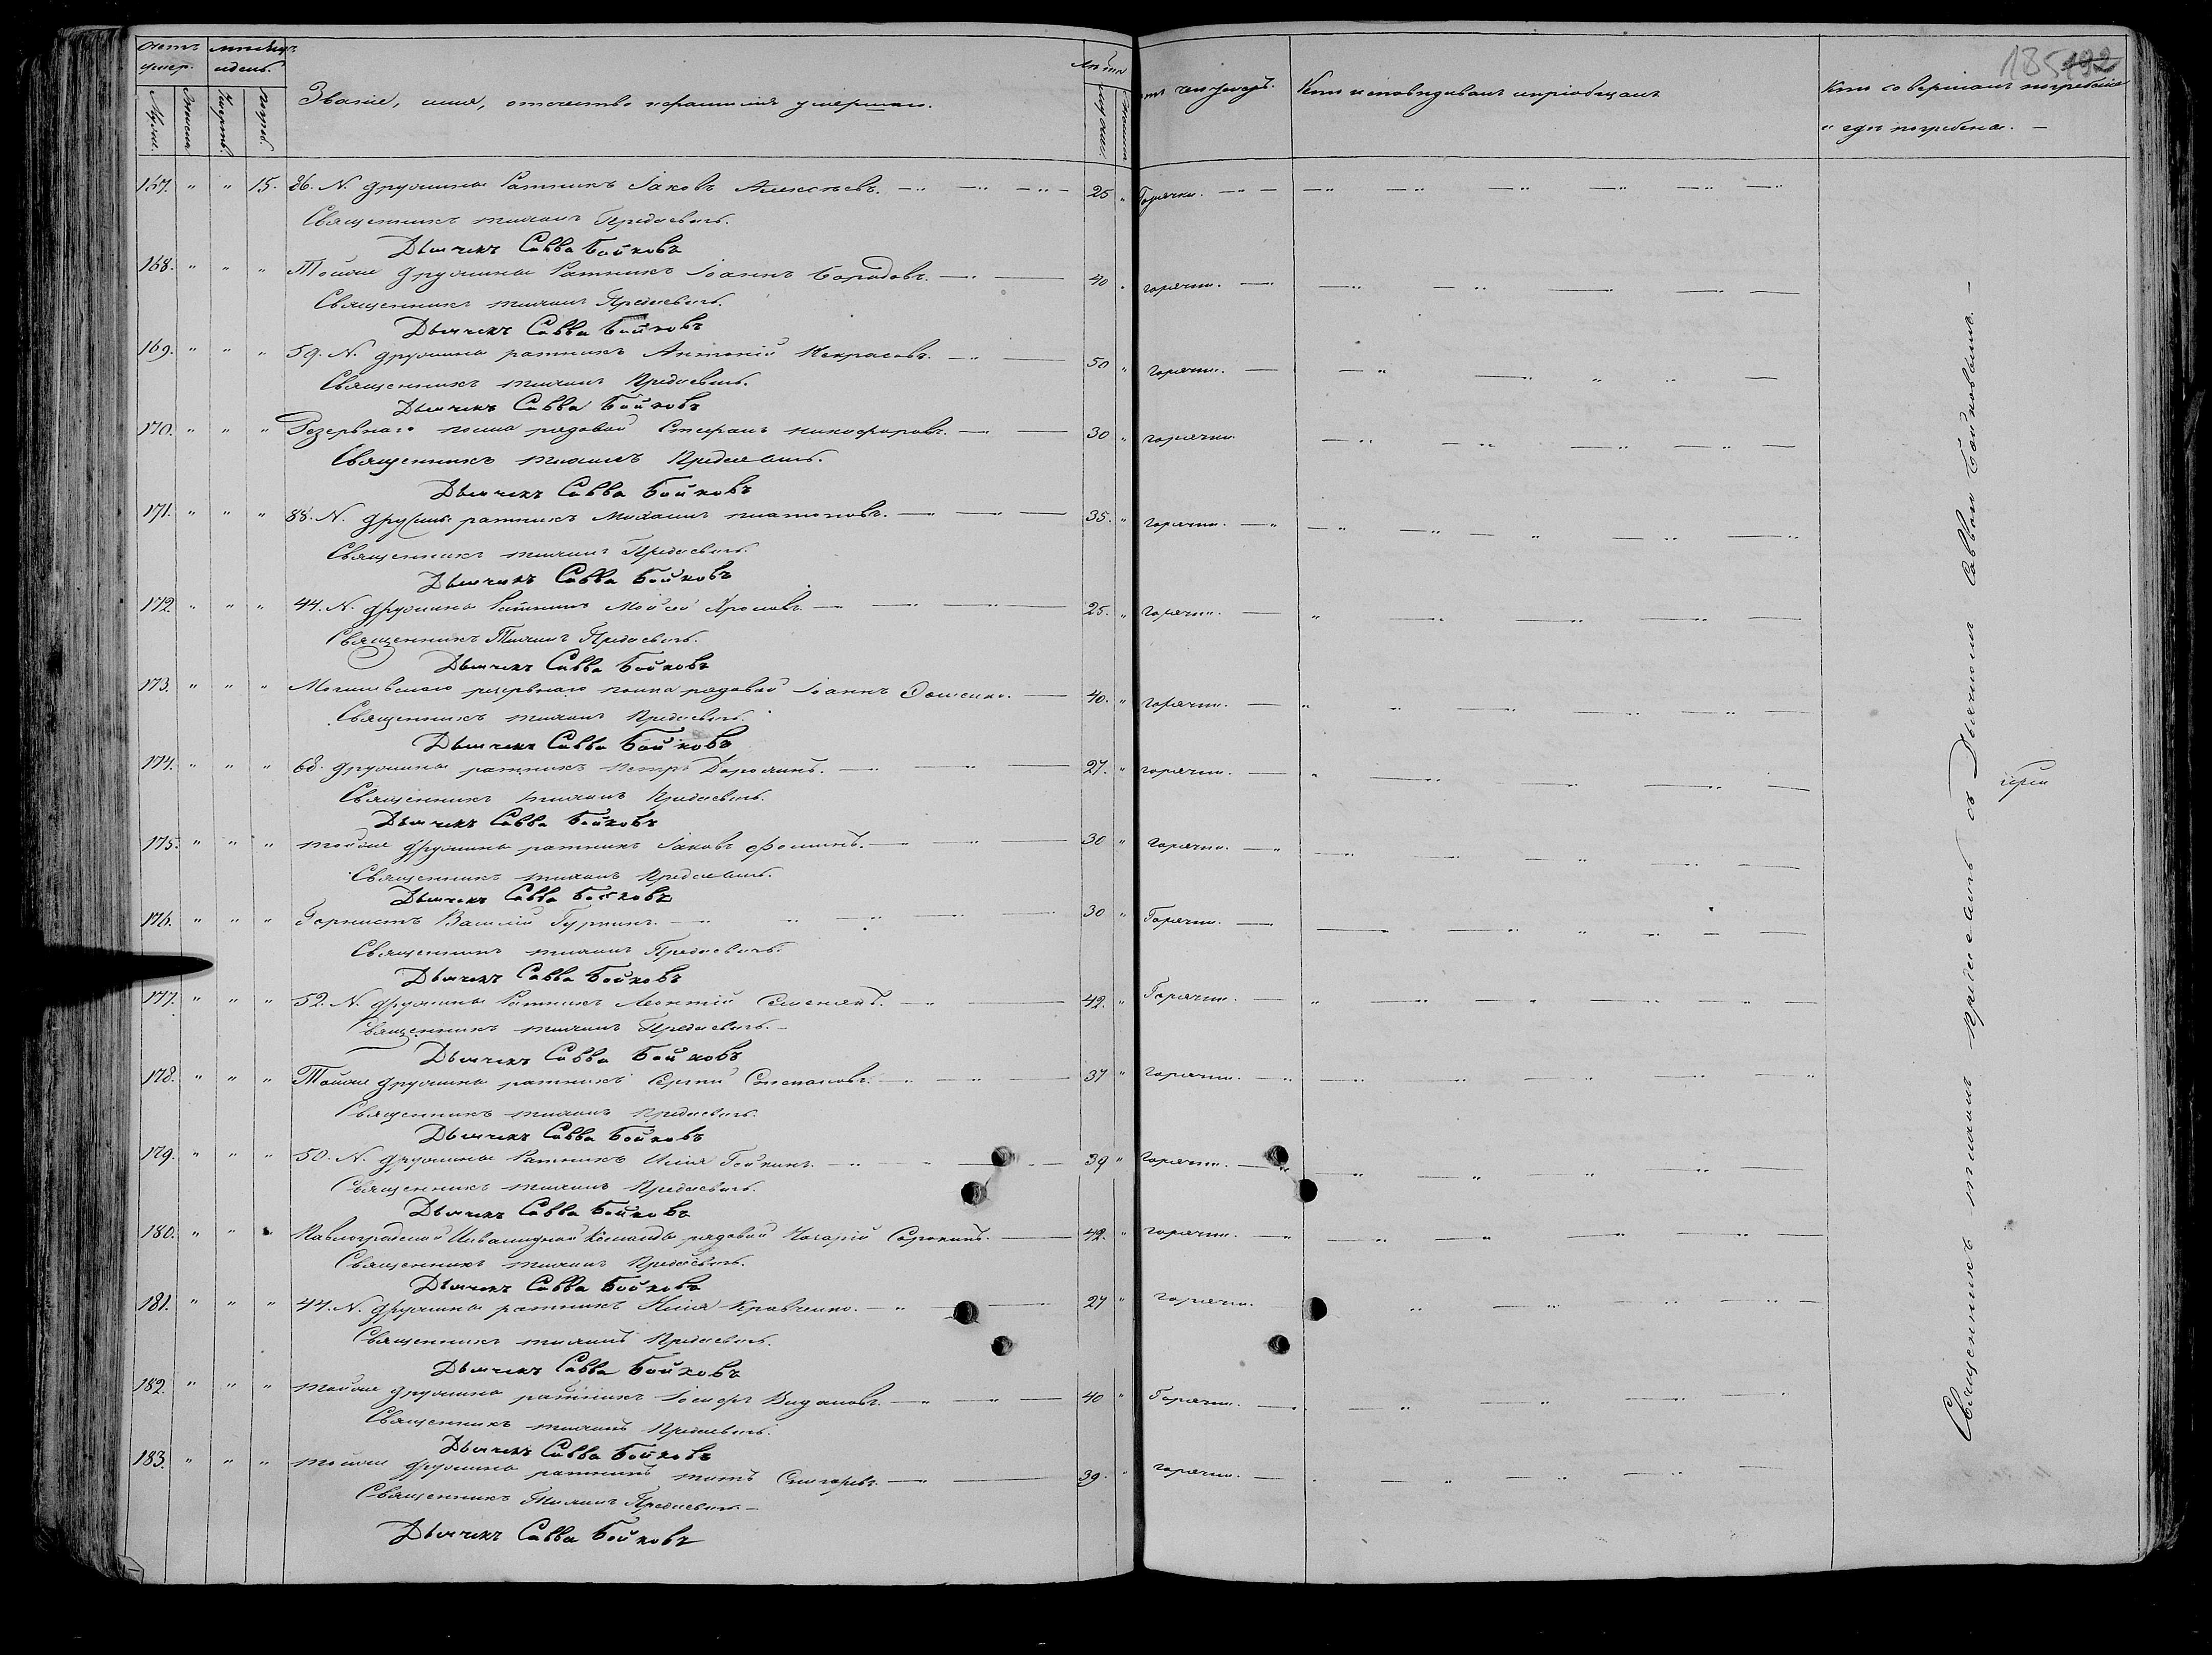 185 192
Счетъ умер. Мѣсяцъ и день. Званіе, имя, отчество и фамилія умершихъ. Лѣта отъ чего умеръ. Кто исповѣдывалъ и пріобщалъ Кто совершалъ погребеніе
и гдѣ погребены. —
Мужск. Женска Смерть. Погреб. Мужскаго. Женска
167. " " 15. 86. N. дружины Ратникъ Іаковъ Алексѣевъ. 25 " Горячки.
Священникъ Предаевичъ.
Дьячекъ Савва Бойковъ
168. " " " Тойже дружины Ратникъ Іоаннъ Бородовъ. 40 " горячки.
Священникъ Предаевичъ.
Дьячекъ Савва Бойковъ
169. " " " 59. N. дружины ратникъ Антоній Некрасовъ. 50 " горячки.
Священникъ Предаевичъ.
Дьячекъ Савва Бойковъ
170. " " " Резервнаго полка рядовой Стефанъ Никифоровъ. 30 " горячки
Священникъ Предаевичъ.
Дьячекъ Савва Бойковъ
171. " " " 88. N. дружины ратникъ Михаилъ Платоновъ. 35. " горячки.
Священникъ Предаевичъ.
Дьячекъ Савва Бойковъ
172. " " " 44. N. дружины Ратникъ Мойсей 25. " горячки.
Священникъ Предаевичъ.
Дьячекъ Савва Бойковъ
173. " " " Могилевскаго резервнаго полка рядовой Іоаннъ 40. " горячки.
Священникъ Предаевичъ.
Дьячекъ Савва Бойковъ
174. " " " дружины ратникъ Петръ Дорожинъ. 27. " горячки.
Священникъ Предаевичъ.
Дьячекъ Савва Бойковъ
175. " " " тойже дружины ратникъ Іаковъ Фоминъ. 30 " горячки.
Священникъ Предаевичъ.
Дьячекъ Савва Бойковъ
176. " " " Горнистъ Василій Гуркинъ. 30 " Горячки.
Священникъ Предаевичъ.
Дьячекъ Савва Бойковъ
177. " " " 52. N. дружины Ратникъ Леонтій 42. " Горячки.
Священникъ Предаевичъ.
Дьячекъ Савва Бойковъ
178. " " " Тойже дружины ратникъ Сергій Степановъ. 37 " горячки.
Священникъ Предаевичъ.
Дьячекъ Савва Бойковъ
179. " " " 50. N. дружины Ратникъ Илія 39 " горячки.
Священникъ Предаевичъ.
Дьячекъ Савва Бойковъ
180. " " " Павлоградской Инвалидной Команды рядовой Назарій Сорокинъ. 42. " горячки.
Священникъ Предаевичъ.
Дьячекъ Савва Бойковъ
181. " " " 44. N. дружины ратникъ Илія Кравченко. 27 " горячки.
Священникъ Предаевичъ.
Дьячекъ Савва Бойковъ
182. " " " тойже дружины ратникъ Іосифъ 40 " Горячки.
Священникъ Предаевичъ.
Дьячекъ Савва Бойковъ
183. " " " тойже дружины ратникъ Титъ 39. " горячки.
Священникъ Предаевичъ. —
Дьячекъ Савва Бойковъ
Священникъ Предаевичъ съ Дьячкомъ Саввою Бойковымъ. —